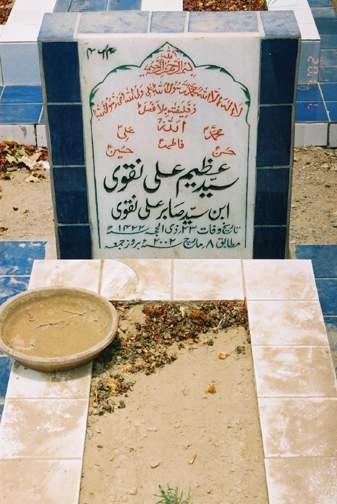 بسم اللہ الرحمن الرحیم
لا الہ الا اللہ محمد رسول اللہ علی ولی اللہ وصی رسول اللہ
وخلیفتہ بلا فصل
محمدؐ اللہ علیؑ
حسنؑ فاطمہؑ حسینؑ
سید عظیم علی نقوی
ابن سید صابر علی نقوی
تاریخ وفات ۲۳ ذی الحجہ ۱۴۲۲ھ
مطابق ۸ مارچ ۲۰۰۲ء بروز جمعہ